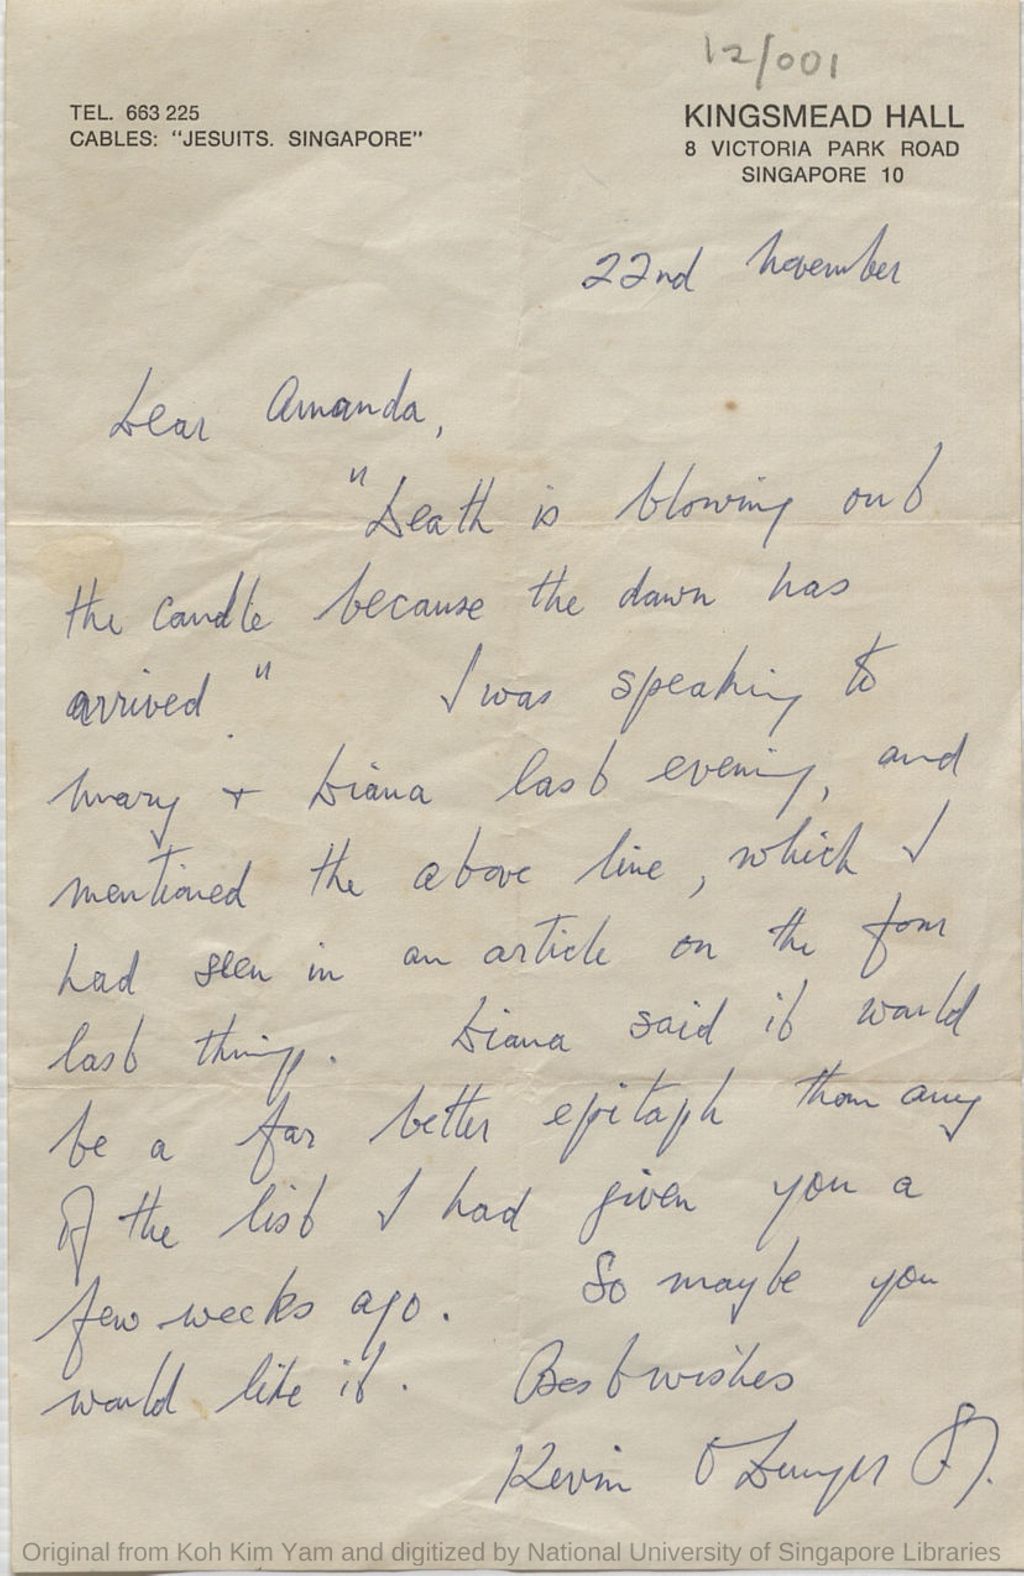 12/001
TEL. 663 225
CABLES: "JESUITS. SINGAPORE"
KINGSMEAD HALL
8 VICTORIA PARK ROAD
SINGAPORE 10
22nd November
Dear Amanda,
"Death is blowing out
the candle because the dawn has
arrived." I was speaking to
Mary + Diana last evening, and
mentioned the above line, which I
had seen in an article on the four
last things. Diana said it would
be a far better epitaph than any
of the list I had given you a
few weeks ago. So maybe you
would like it. Best wishes
Kevin O'Dwyer SJ.
Original from Koh Kim Yam and digitized by National University of Singapore Libraries